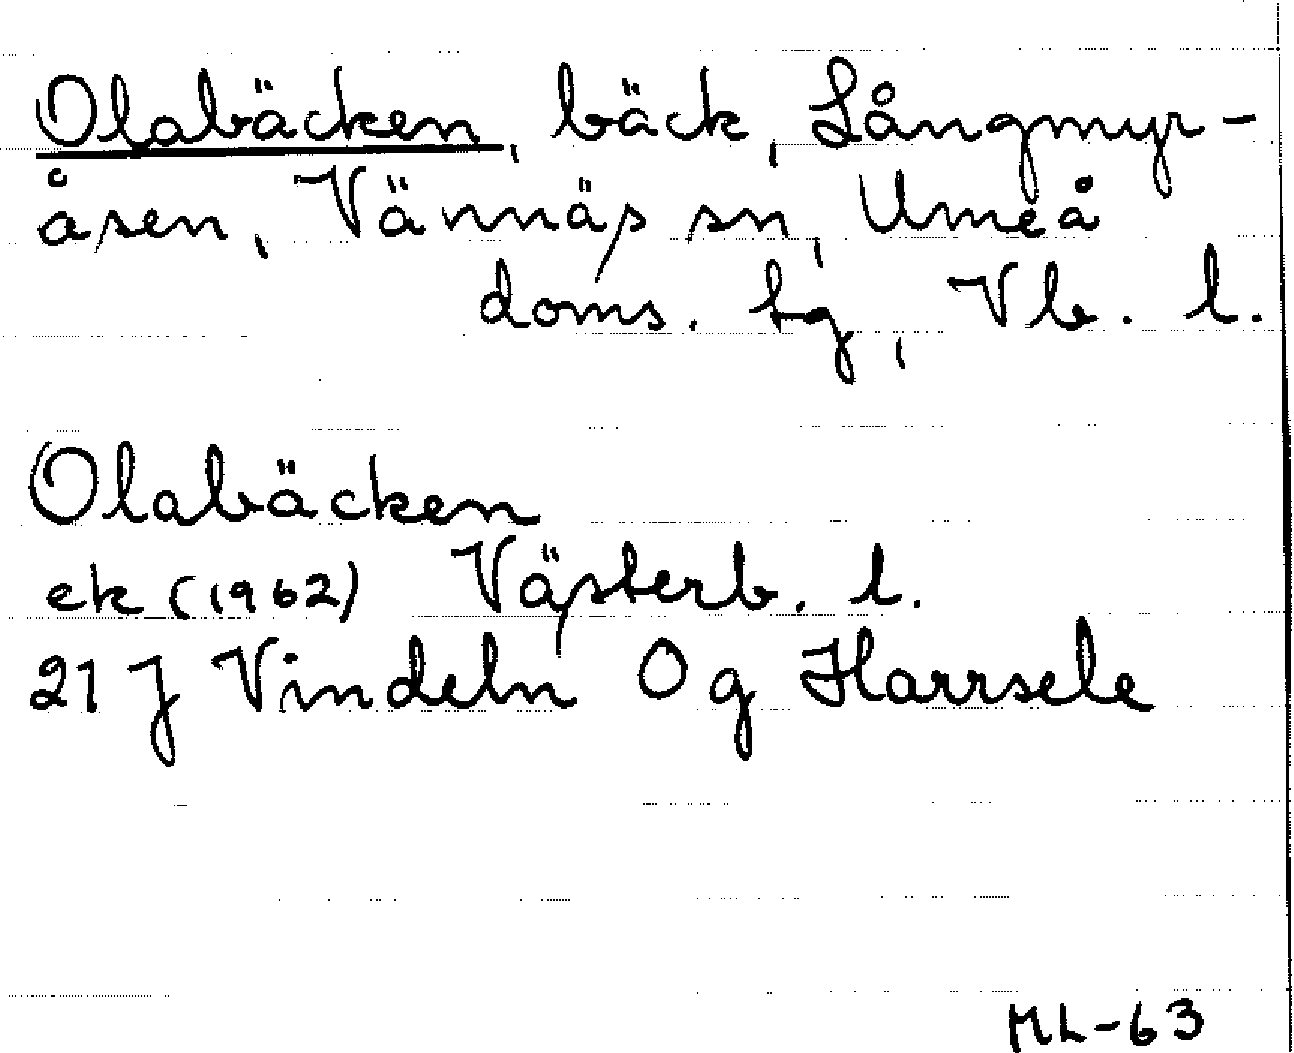 Olabäcken, bäck, Långmyr-
åsen, Vännäs sn, Umeå
doms. tg, Vb. l.
Olabäcken
ek (1962) Västerb. l.
21 J Vindeln 0 g Harrsele
ML-63